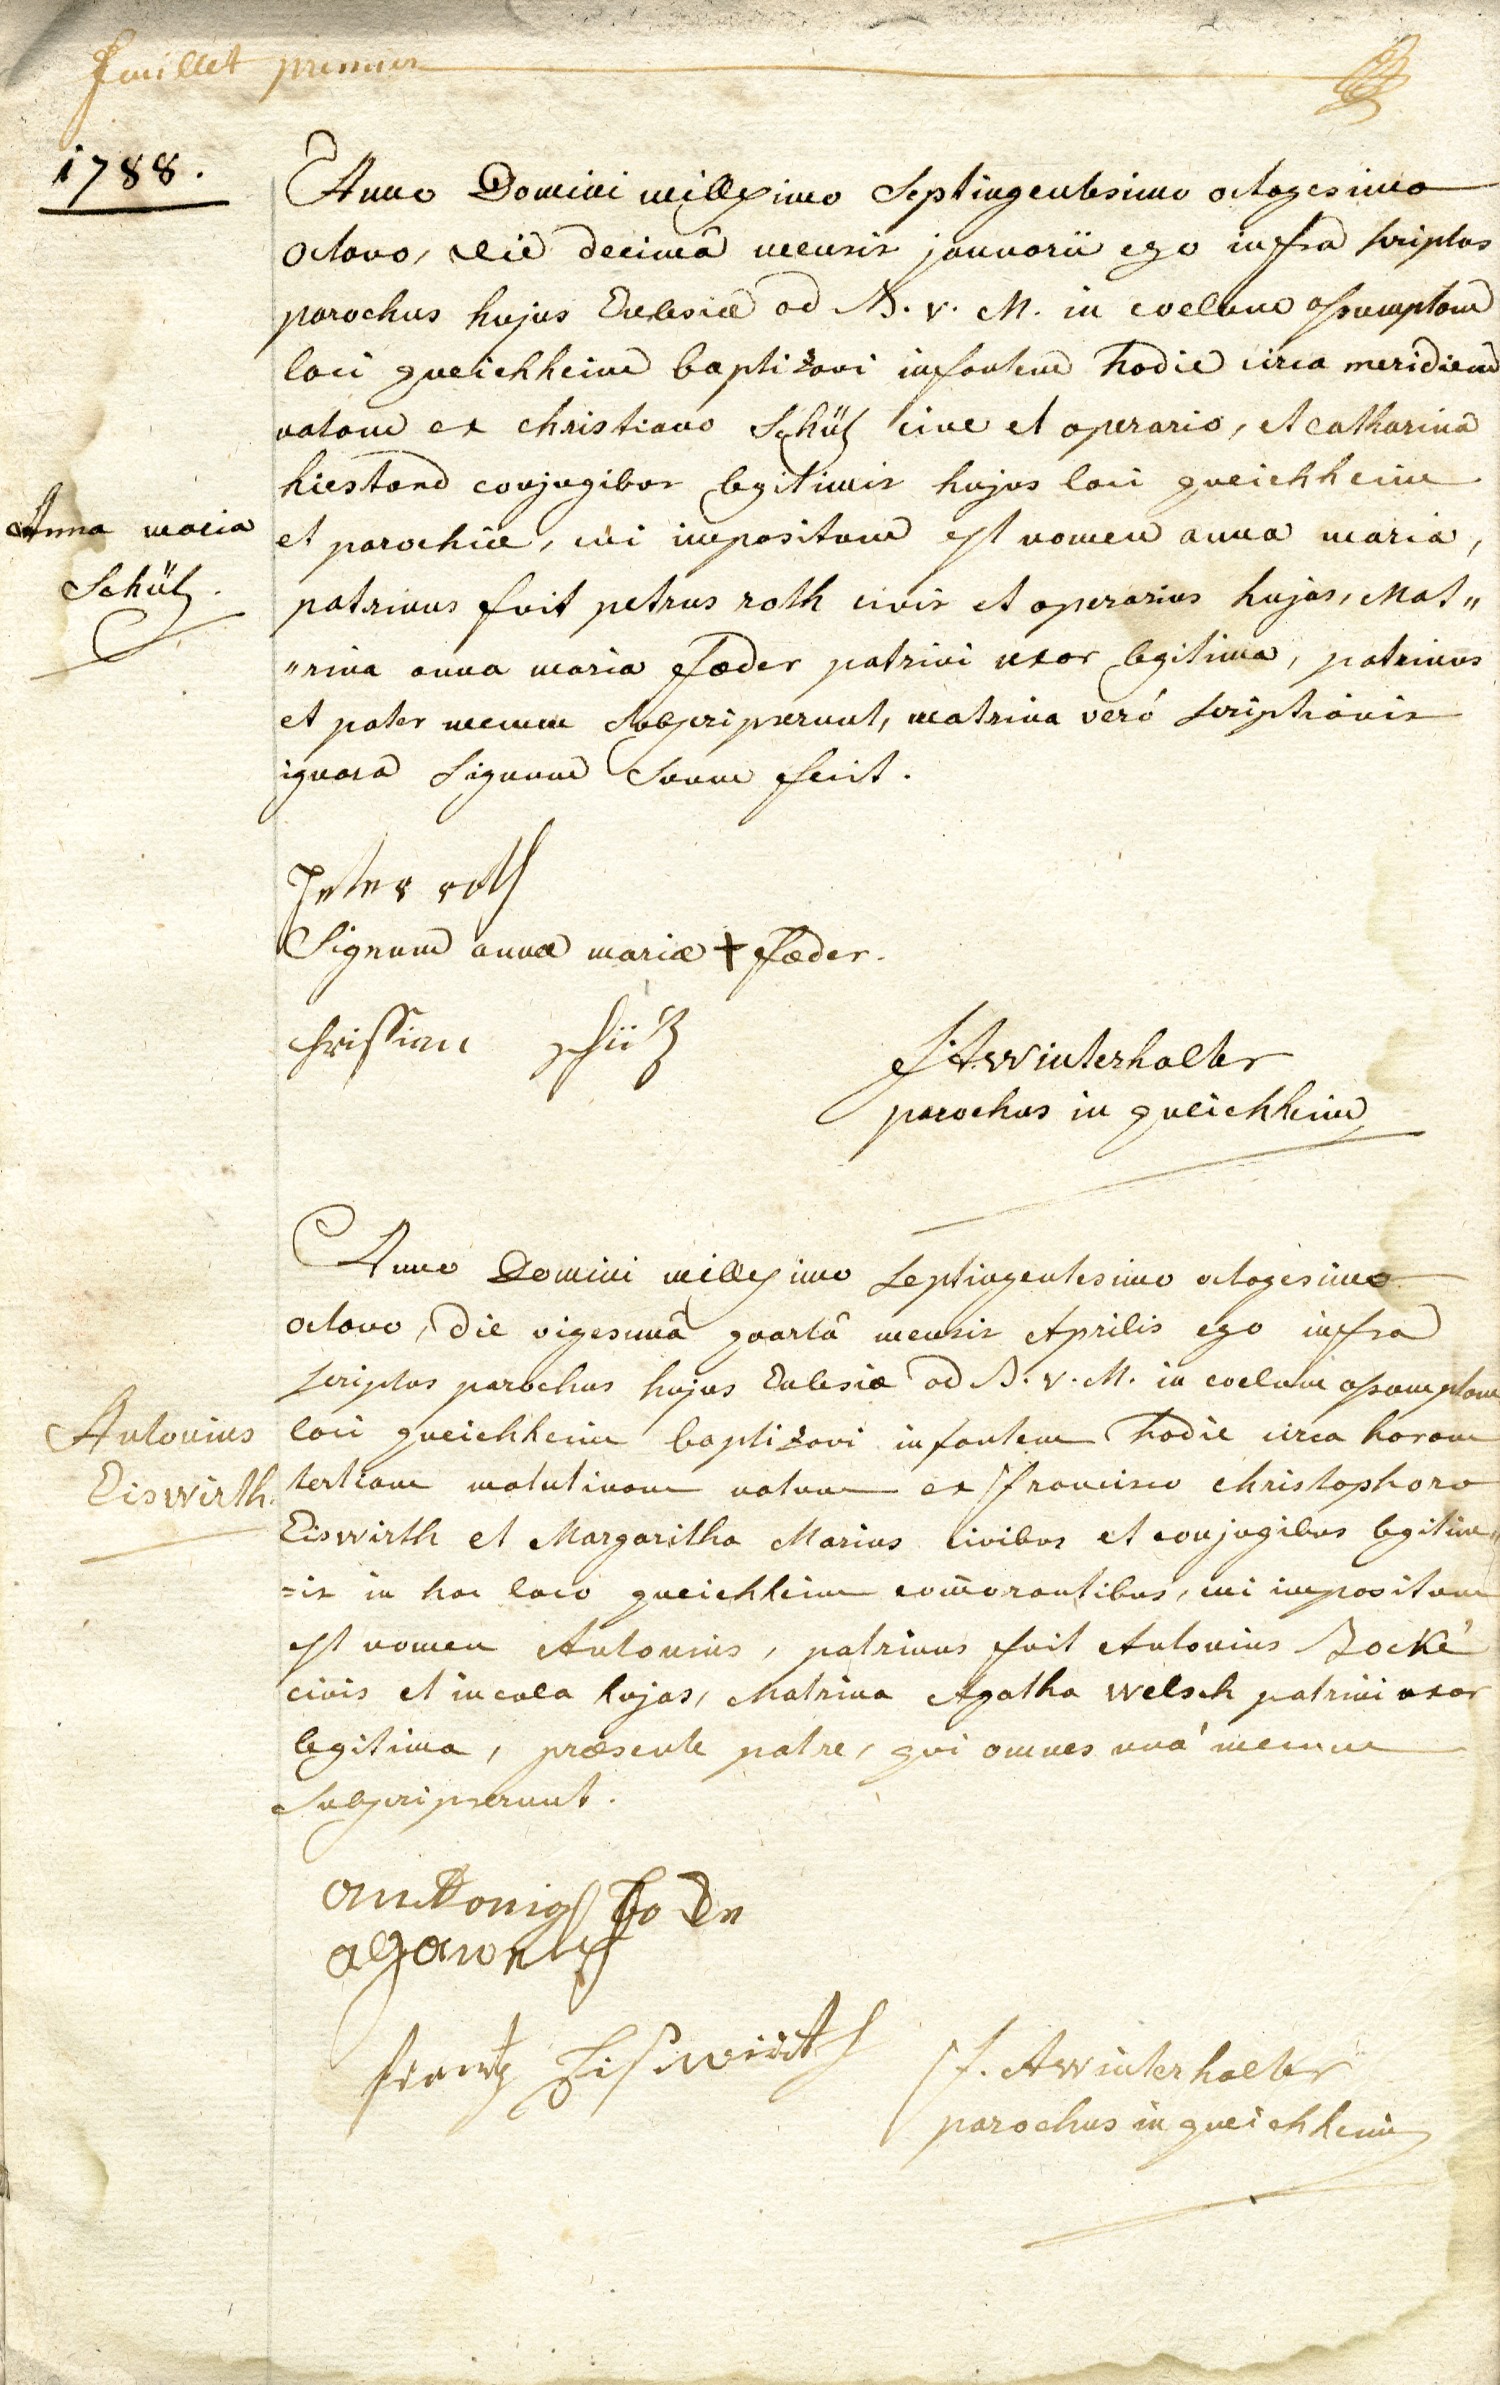 feuillet premier
1788.
Anno Domini millesimo Septingentesimo octogesimo
octavo, die decimâ mensis januarii ego infra scriptus
parochus hujus Ecclesiæ ad B. v. M. in coelum assumptam
loci queichheim baptizavi infantem hodie circa meridiem
natam ex christiano Schütz cive et operario, et catharina
hiestand conjugibus legitimis hujus loci queichheim
et parochiæ, cui impositum est nomen anna maria,
Anna maria
Schütz.
patrinus fuit petrus roth civis et operarius hujas, Mat"
"rina anna maria fæder patrini uxor legitima, patrinus
et pater mecum subscripserunt, matrina veró scriptionis
ignara signum suum fecit.
Peter roth
Signum annæ mariæ + fæder.
christian schütz
F. A Winterhalter
parochus in queichheim
Anno Domini millesimo septingentesimo octogesimo
octavo, die vigesimâ quartâ mensis Aprilis ego infra
scriptus parochus hujus Ecclesiæ ad B. v. M. in coelum assumptam
loci queichheim baptizavi infantem hodie circa horam
tertiam matutinam natum ex francisco christophoro
Antonius
Eiswirth.
Eiswirth et Margaritha Marius civibus et conjugibus legitim"
=is in hoc loco queichheim com̄orantibus, cui impositum
est nomen Antonius, patrinus fuit Antonius Bocké
civis et incola hujas, Matrina Agatha welsch patrini uxor
legitima, præsente patre, qui omnes uná mecum
subscripserunt.
frantz Eiswirth
F. A Winterhalter
parochus in queichheim